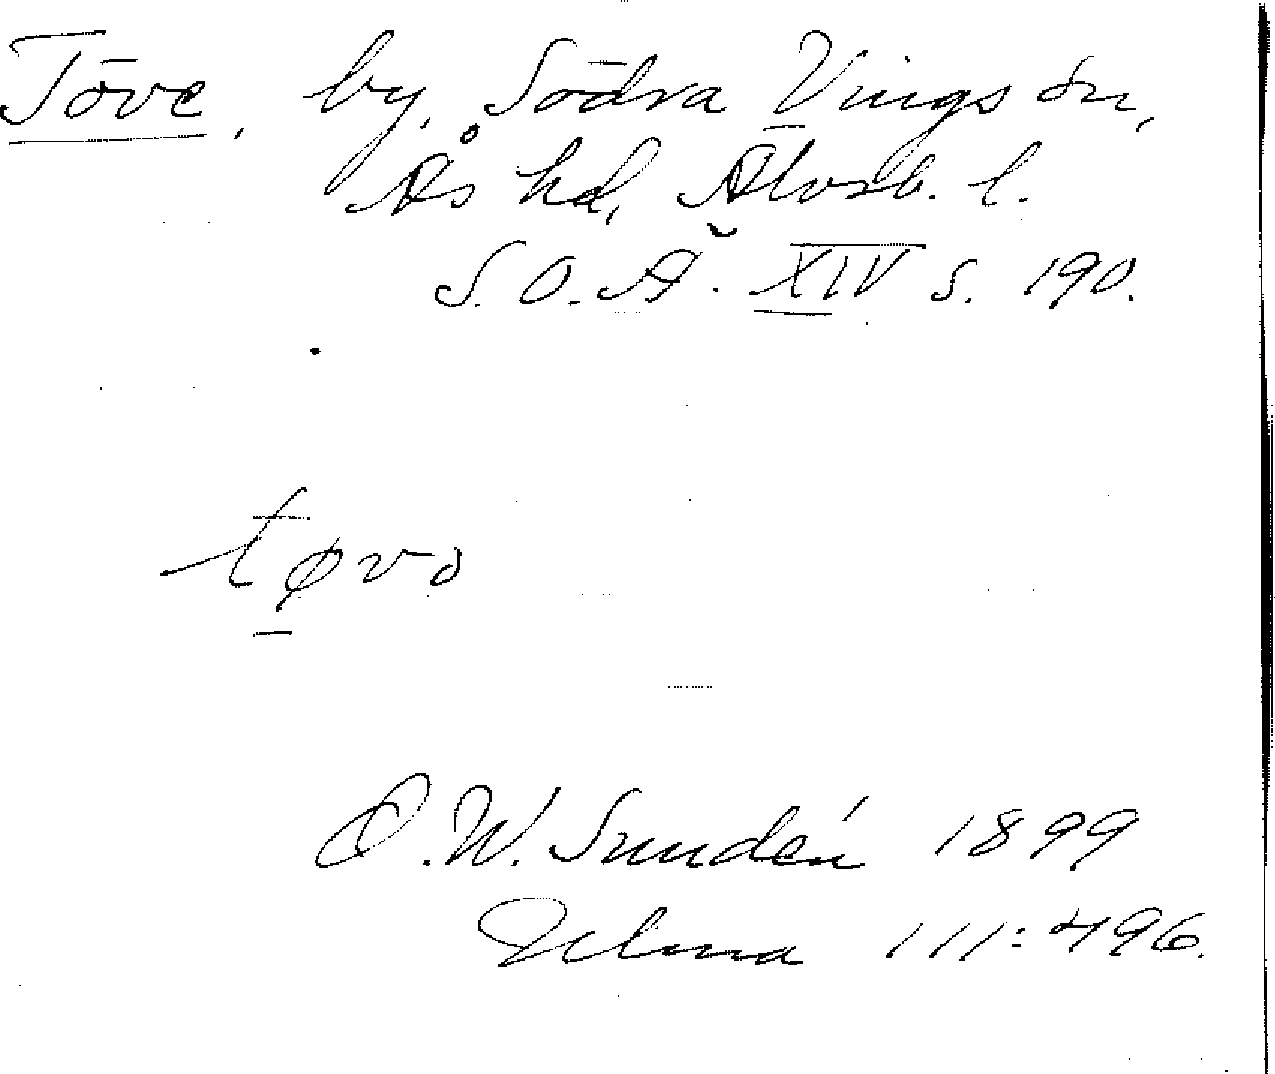 Töve, by, Södra Vings sn,
Ås hd, Älvsb. l.
S. O. Ä. XIV s. 190.
tøvə
D. W. Sundén 1899
Uelma 111:496.